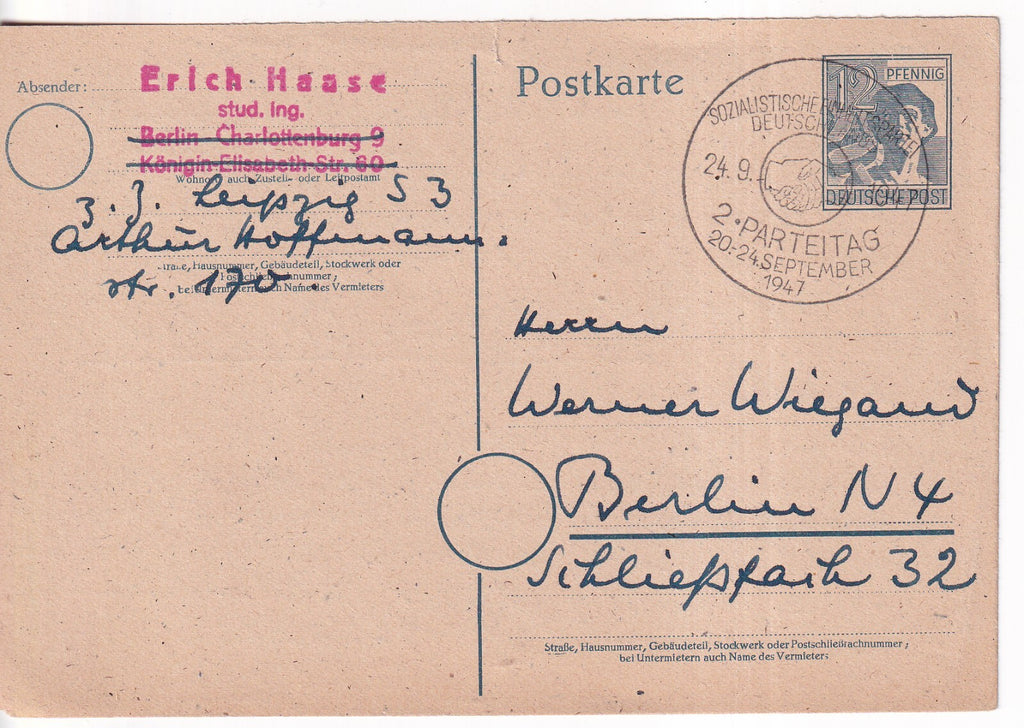 Absender:
Erich Haase
stud. ing.
Berlin-Charlottenburg 9
Königin-Elisabeth-Str. 60
Wohnort, auch Zustell- oder Leitpostamt
z. Z. Leipzig S 3
Arthur Hoffmann-
Straße, Hausnummer, Gebäudeteil, Stockwerk oder
Postschließfachnummer;
bei Untermietern auch Name des Vermieters
str. 170.
Postkarte
12 PFENNIG
DEUTSCHE POST
SOZIALISTISCHE EINHEITSPARTEI
DEUTSCHLANDS
24. 9.
2. PARTEITAG
20.-24. SEPTEMBER
1947
Herrn
Werner Wiegand
Berlin N 4
Schließfach 32
Straße, Hausnummer, Gebäudeteil, Stockwerk oder Postschließfachnummer;
bei Untermietern auch Name des Vermieters